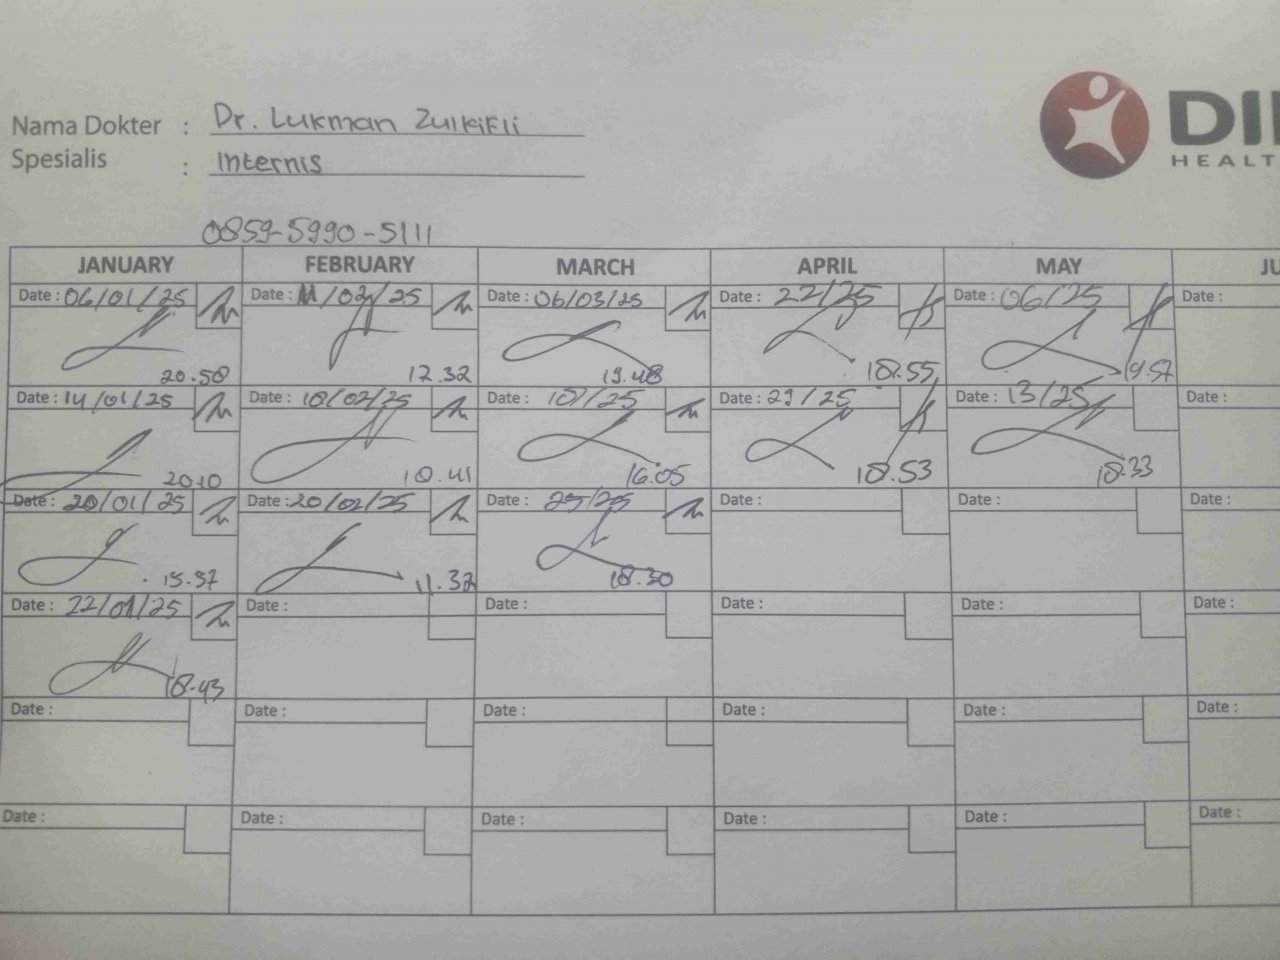 Nama Dokter : Dr. Lukman Zulkifli
Spesialis : Internis
DI
HEALT
0859-5990-5111
JANUARY FEBRUARY MARCH APRIL MAY JU
Date : 06/01/25 Date : 11/02/25 Date : 06/03/25 Date : 22/25 Date : 06/25 Date :
20.50 12.32 19.48 18.55 19.57
Date : 14/01/25 Date : 18/02/25 Date : Date : 29/25 Date : 13/25 Date :
20.10 18.41 16.05 18.53 18.33
Date : 20/01/25 Date : 20/02/25 Date : 25/25 Date : Date : Date :
15.57 11.32 18.30
Date : 22/01/25 Date : Date : Date : Date : Date :
18.43
Date : Date : Date : Date : Date : Date :
Date : Date : Date : Date : Date : Date :